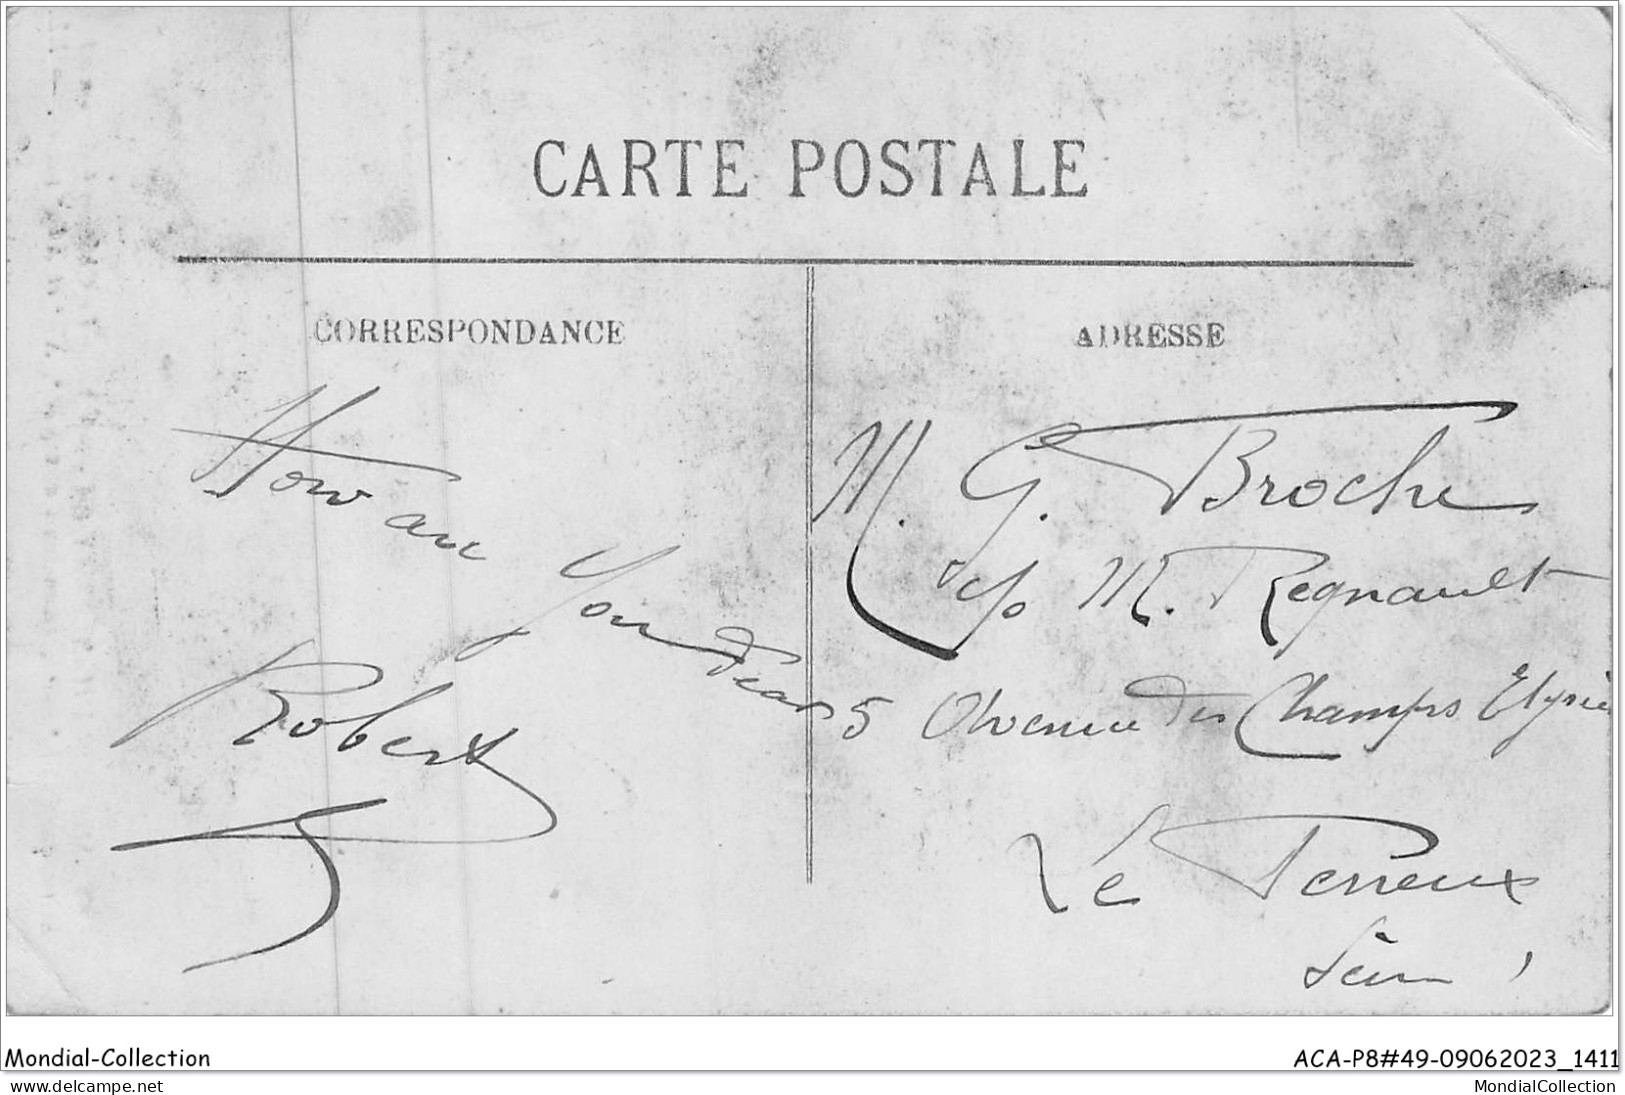 CARTE POSTALE
CORRESPONDANCE
How are
You
dear
Robert
ADRESSE
M. G. Broche
c/o M. Regnault
5 Avenue des Champs Elysées
Le Perreux
Seine
Mondial-Collection
ACA-P8#49-09062023_1411
www.delcampe.net
MondialCollection